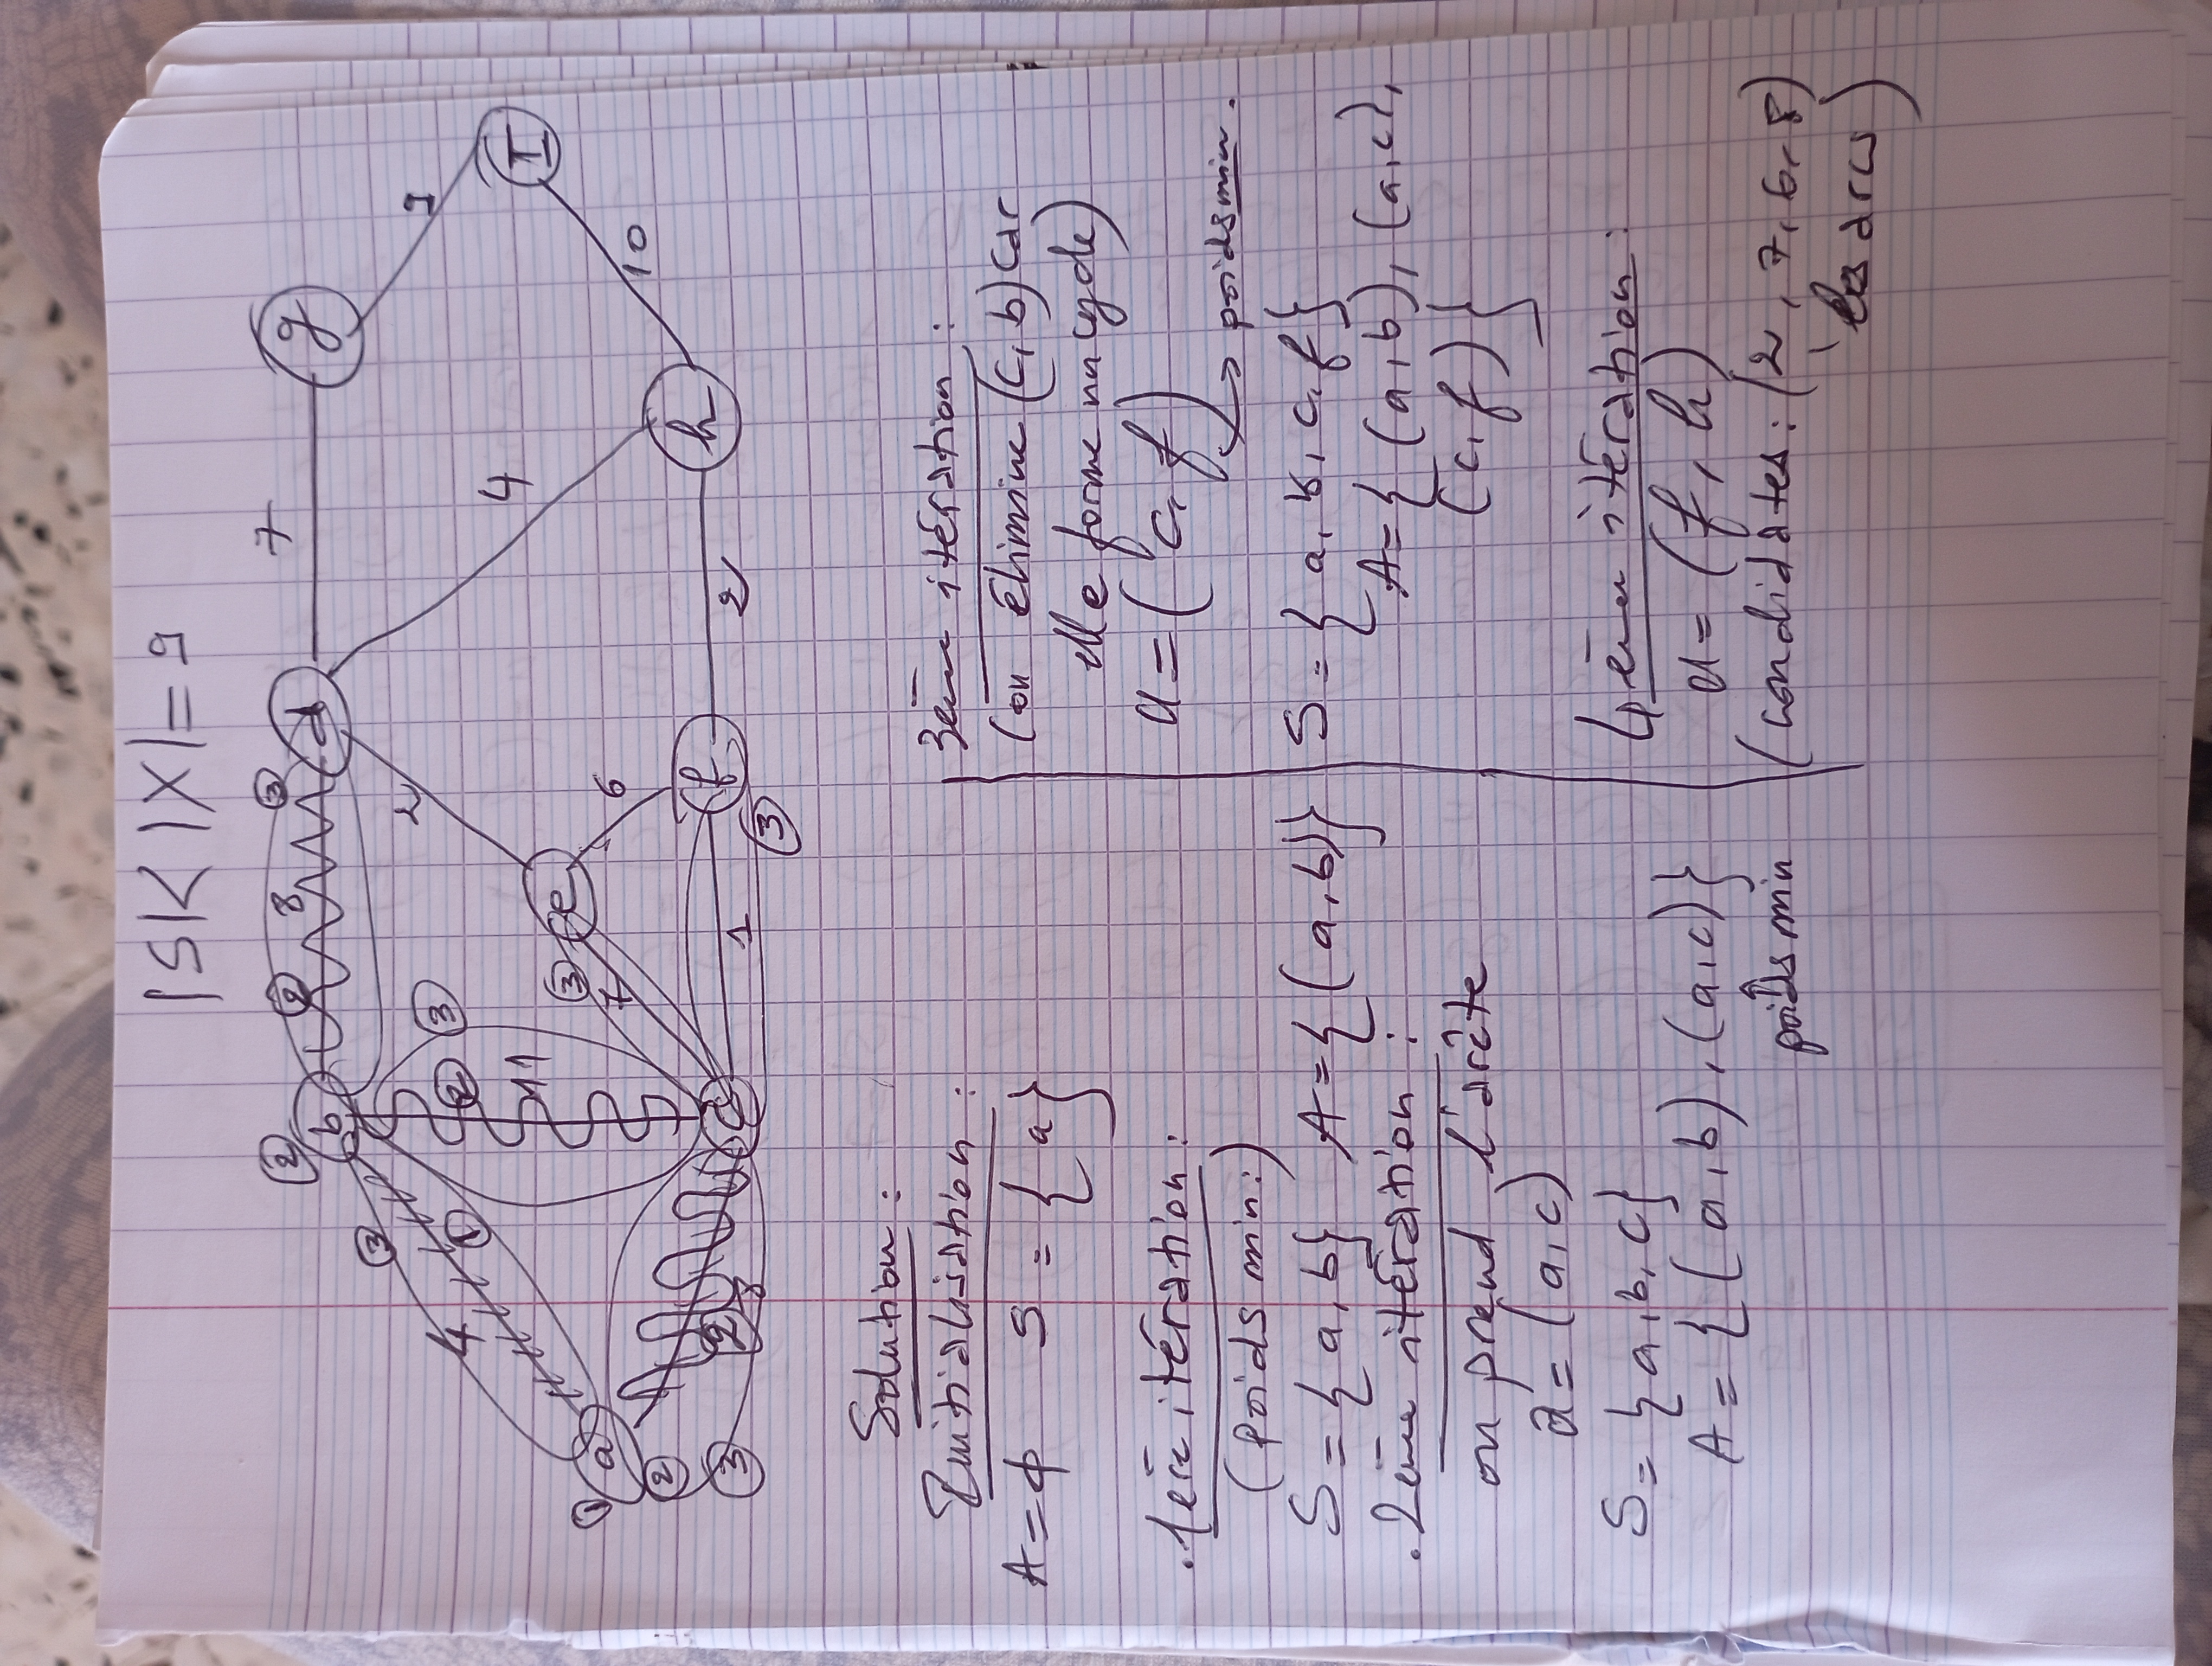 |S| < |X| = 9
① a 4 ① ③ ② b ② 8 ③ d 7 g
② ③ 8 11 ② ③ 7 ③ e 2 4 9
c 1 6 ③ f 2 h 10 I
Solution :
Initialisation :
A = ϕ S = { a }
. 1ère itération :
(poids min:)
S = { a, b } A = { (a, b) }
. 2ème itération :
on prend l'arête
a = (a, c)
S = { a, b, c }
A = { (a, b), (a, c) }
↑
poids min
3ème itération :
(on élimine (c, b) car
elle forme un cycle)
u = (c, f) → poids min.
S = { a, b, c, f }
A = { (a, b), (a, c),
(c, f) }
4ème itération :
u = (f, h)
(candidates : (2, 7, 6, 8)
les arcs)